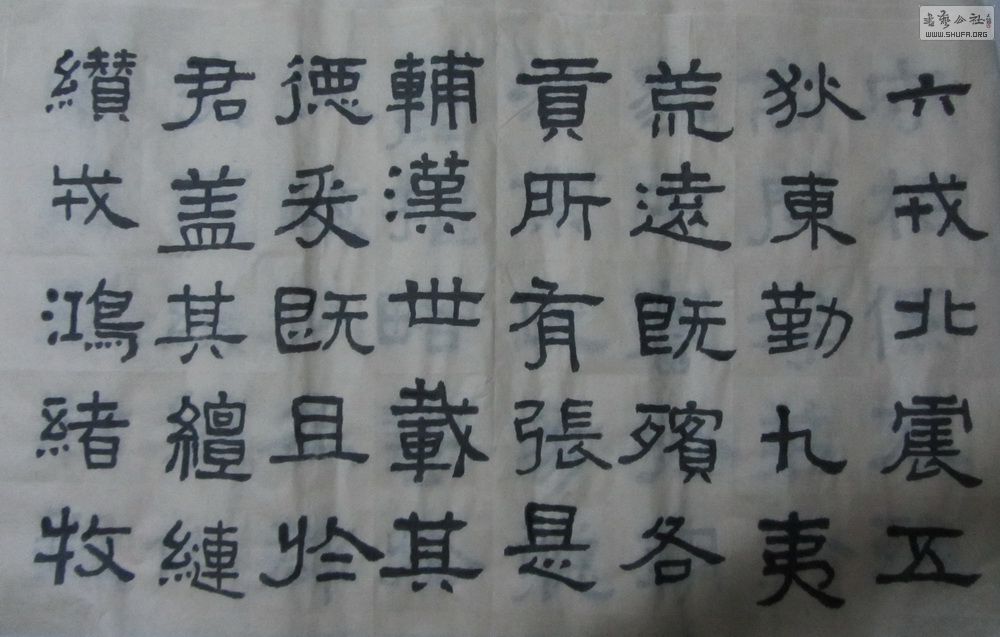 六戎北震五
狄東勤九夷
荒遠既殯各
貢所有張是
輔漢世載其
德爰既且於
君盖其繵縺
纘戎鴻緒牧
书艺公社
WWW.SHUFA.ORG